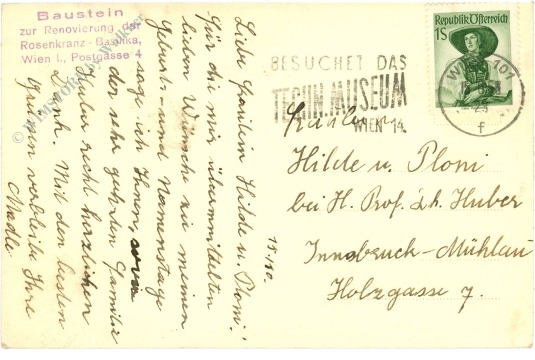 Baustein
zur Renovierung der
Rosenkranz-Basilika,
Wien I., Postgasse 4
Liebe Fräulein Hilde u. Ploni!
Für die mir übermittelten
lieben Wünsche zu meinem
Geburts- und Namenstage
sage ich Ihnen, sowie
der sehr geehrten Familie
Huber recht herzlichen
Dank. Mit den besten
Grüssen verbleibe Ihre
Nadle
BESUCHET DAS
TECHN. MUSEUM
WIEN 14.
Republik Österreich
1S
WIEN 101
f
Fräulein
Hilde u. Ploni
bei H. Prof. Dr. Huber
Innsbruck-Mühlau
Holzgasse 7.